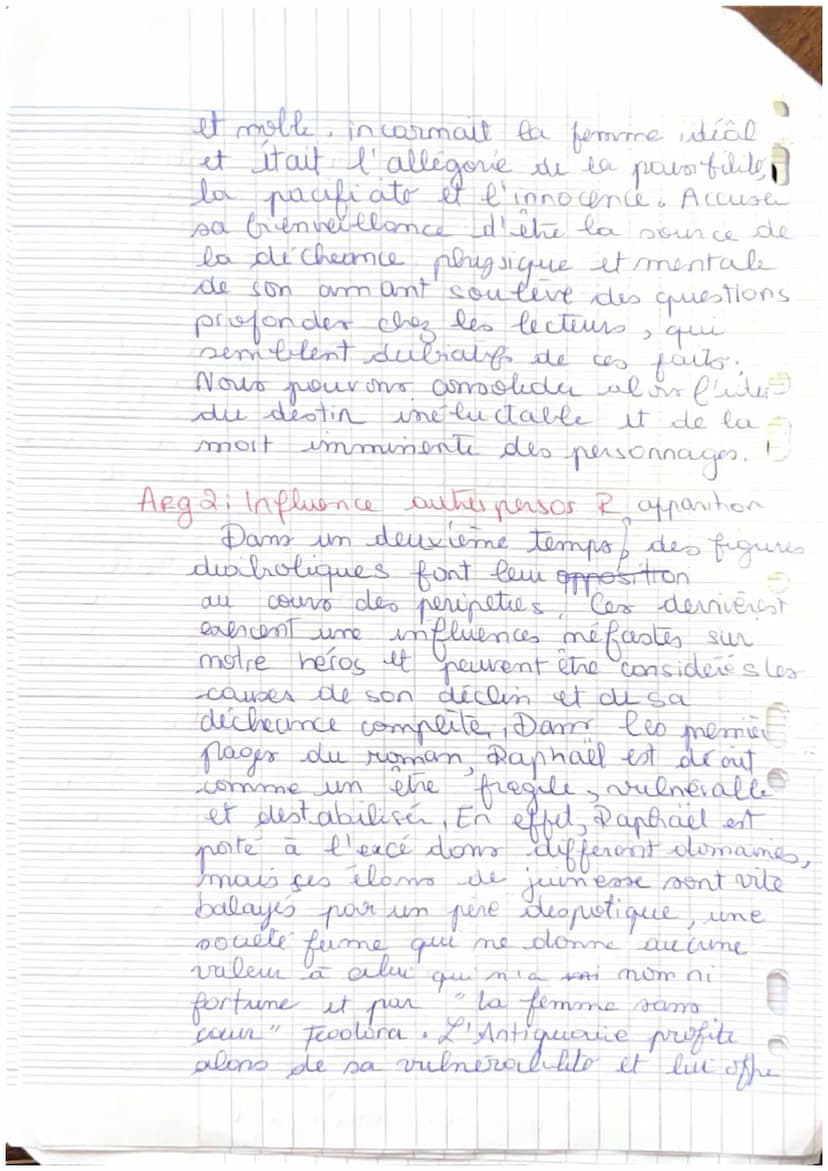 et molle, incarnait la femme idéal
et était l'allégorie de la paisibilité,
la pacifiato et l'innocence. Accuser
sa bienveillance d'être la source de
la décheance physique et mentale
de son amant soulève des questions
profondes chez les lecteurs, qui
semblent dubiatifs de ces faits.
Nous pouvons consolider alors l'idée
du destin ineluctable et de la
mort imminente des personnages.
Arg 2: Influence autres persos R apparition
Dans un deuxième temps, des figures
diaboliques font leur opposition
au cours des peripeties. Ces dernières
exercent une influences méfastes sur
notre héros et peuvent être considerés les
causes de son déclin et de sa
décheance complète. Dans les premier
pages du roman, Raphaël est décrit
comme un être fragile, vulnérable
et destabilisén. En effet, Raphaël est
porté à l'excé dans different domaines,
mais ses élans de jeunesse sont vite
balayés par un père despotique, une
société fermé qui ne donne aucune
valeur à celui qui n'a ni nom ni
fortune et par "la femme sans
cœur" Feodora. L'Antiquaire profite
alors de sa vulnerabilité et lui offre